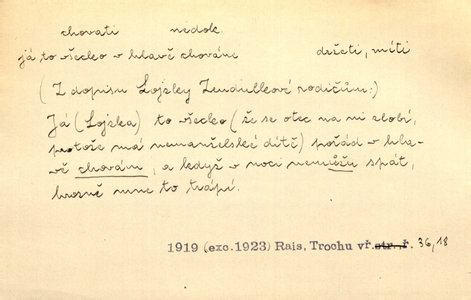 chovati nedok.
já to všecko v hlavě chovám držeti, míti
(Z dopisu Lojzky Zendulkové rodičům:)
Já (Lojzka) to všecko (že se otec na mi zlobí,
protože má nemanželské dítě) pořád v hla-
vě chovám, a když v noci nemůžu spát,
hrozně mne to trápí.
1919 (exc.1923) Rais, Trochu vř. str. ř. 36,18